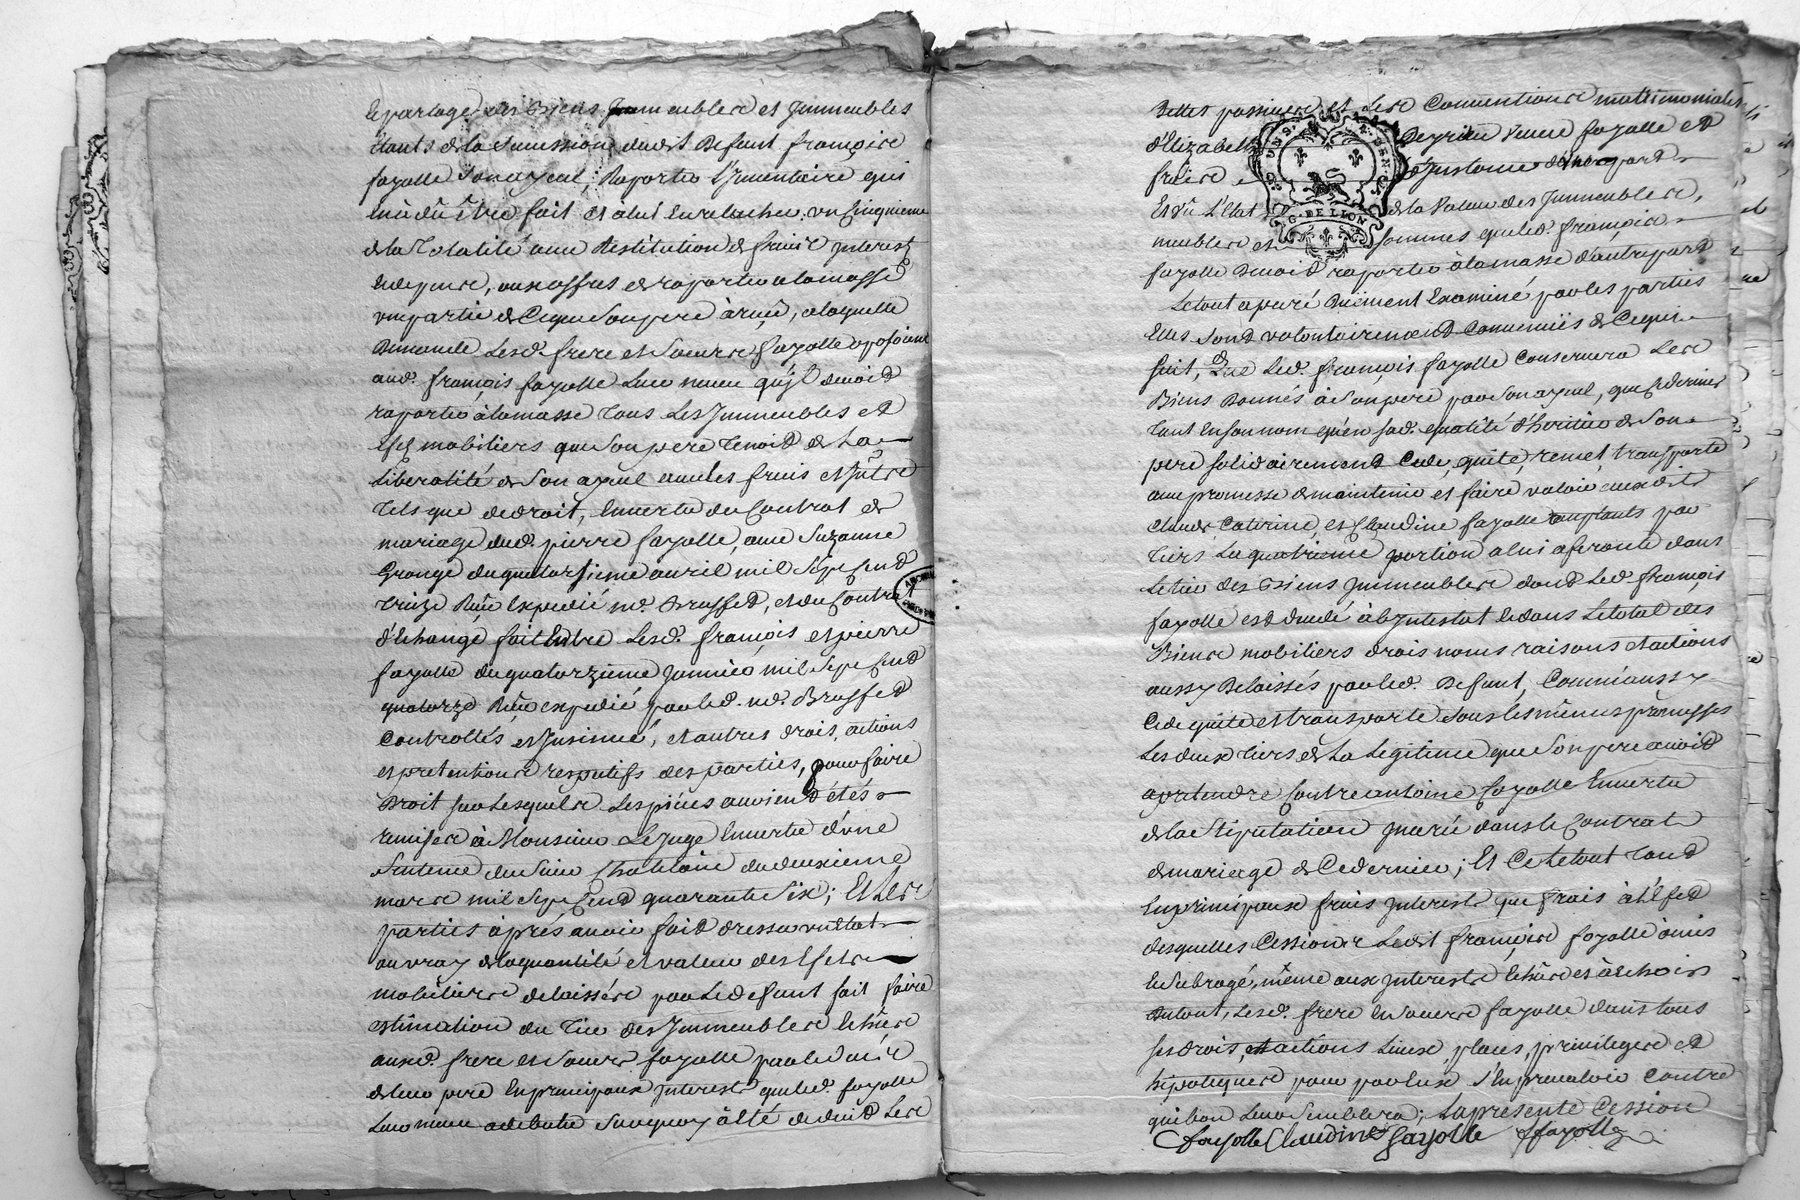 le partage des Biens Jmmeubles et Jmmeubles
Etants de la Succession dudit Defunt françois
fayolle Son ayeul; Raporter L'Jnventaire qui
en a dû être fait et a lui En relacher un Cinquieme
de la Totalité avec Restitution de fruits Jnterest
Et depens, aux offres de raporter a la masse
une partie de Ce que Son pere a reçu, a laquelle
Demande Lesd. frere et Soeurs fayolle oposoient
aud. françois fayolle Leur neveu qu'jl devoit
raporter à la masse Tous Les Jmmeubles et
Efets mobiliers que Son pere Tenoit de La
Liberalité de Son ayeul avec les fruis et Jnterests
Tels que de droit, En vertu du Contrat de
mariage dud. pierre fayolle, avec Suzanne
Grange du quatorzieme avril mil Sept Cent
Treize Reçu Expedié me. Brossed, et du Contrat
d'Echange fait Entre Lesd. françois et pierre
fayolle du quatorzieme Janvier mil Sept Cent
quatorze Reçu expedié par led. me. Brossed
Controllés et Jnsinué, et autres drois, actions
et pretentions respectifs des parties, pour faire
Droit sur Lesquels Les pieces auroient étés
remises à Monsieur Le Juge En vertu d'une
Sentence du Sieur Chatelain du deuxieme
mars mil Sept Cent quarante Six; Et Les
parties après avoir fait dresser un Etat
au vray de la quantité et valeur des Efets
mobiliers delaissés par Le defunt fait faire
estimation du Tier des Jmmeubles
auxd. frere et Soeurs fayolle par le
de leur pere En principaux Jnterests que led. fayolle
Leur neveu a debatu Sur quoy à été deduit Les
Dettes passives et Les Conventions matrimoniales
d'Elizabeth Peyrieu veuve fayolle et
frais
Et vû L'Etat de la Valeur des Jmmeubles,
meubles et sommes que led. françois
fayolle Devoit raporter à la masse d'autre part
Le tout apuré Duement Examiné par les parties
Elles Sont volontairement Convenües de Ce qui
Suit, Que Led. françois fayolle Conservera Les
Biens Donnés à Son pere par Son ayeul, que Ce dernier
Tant En son nom qu'en sad. qualité d'heritier de Son
pere solidairement Cede, quite, remet, transporte
avec promesse de maintenir et faire valoir auxdits
Claude, Caterine, et Claudine fayolle acceptants par
Tiers La quatrieme portion a lui aferante dans
Le tier des Biens Jmmeubles dont Led. françois
fayolle est decedé àb Jntestat et dans Le total des
Biens mobiliers drois noms raisons et actions
aussy Delaissés par led. Defunt, Comm'aussy
Cede quite et transporte Sous les mêmes promesses
Les deux Tiers de La Legitime que Son pere avoit
a pretendre Contre antoine fayolle En vertu
de la Stipulation portée dans le Contrat
de mariage de Ce dernier; Et Ce Le tout Tant
En principaux fruis Jnterests que frais à l'Efet
desquelles Cessions Ledit françois fayolle a mis
Et Subrogé, même aux Jnterests Echus et à Echoir
Du tout, Lesd. frere et Soeurs fayolle dans tous
ses drois, et actions Lieux, places, privileges et
hipoteques pour par Eux S'En prevaloir Contre
qui bon Leur Semblera; La presente Cession
Cfayolle Claudine fayolle ffayolle
G. DE LION